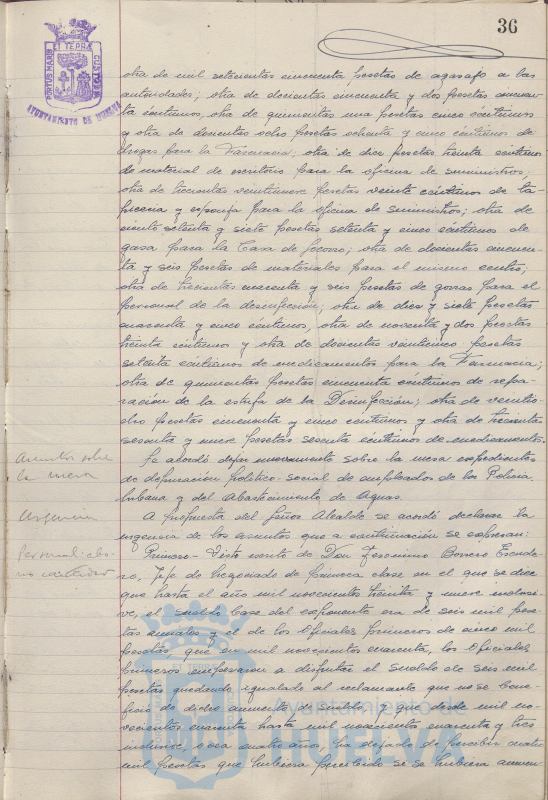 36
PORTUS MARIS ET TERRAE CUSTODIA
AYUNTAMIENTO DE HUELVA
otra de mil setecientas cincuenta pesetas de agasajo a las
autoridades; otra de doscientas cincuenta y dos pesetas cincuen-
ta céntimos, otra de quinientas una pesetas cinco céntimos
y otra de doscientas ocho pesetas ochenta y cinco céntimos de
drogas para la Farmacia, otra de diez pesetas treinta céntimos
de material de escritorio para la oficina de suministros;
otra de trescientas veintinueve pesetas veinte céntimos de ta-
picería y esponja para la oficina de suministros; otra de
ciento setenta y siete pesetas setenta y cinco céntimos de
gasa para la Casa de Socorro; otra de doscientas cincuen-
ta y seis pesetas de materiales para el mismo centro;
otra de trescientas cuarenta y seis pesetas de gorras para el
personal de la desinfección; otra de diez y siete pesetas
cuarenta y cinco céntimos, otra de noventa y dos pesetas
treinta céntimos y otra de doscientas veinticinco pesetas
setenta céntimos de medicamentos para la Farmacia;
otra de quinientas pesetas cincuenta céntimos de repa-
ración de la estufa de la Desinfección; otra de veintio-
cho pesetas cincuenta y cinco céntimos y otra de trescientas
sesenta y nueve pesetas sesenta céntimos de medicamentos.
Asuntos sobre
la mesa
Se acordó dejar nuevamente sobre la mesa expedientes
de depuración político-social de empleados de la Policía
Urbana y del Abastecimiento de Aguas.
Urgencia
A propuesta del Señor Alcalde se acordó declarar la
urgencia de los asuntos que a continuación se expresan:
Personal: abo-
no
Primero - Visto escrito de Don Jerónimo Borrero Escude-
ro, Jefe de Negociado de primera clase en el que se dice
que hasta el año mil novecientos treinta y nueve inclusi-
ve, el sueldo base del exponente era de seis mil pese-
tas anuales y el de los Oficiales primeros de cinco mil
pesetas, que en mil novecientos cuarenta, los Oficiales
primeros empezaron a disfrutar el sueldo de seis mil
pesetas quedando igualado al reclamante que no se bene-
fició de dicho aumento de sueldo, y que desde mil no-
vecientos cuarenta hasta mil novecientos cuarenta y tres
inclusive, o sea cuatro años, ha dejado de percibir cuatro
mil pesetas que hubiera percibido si se hubiera aumen-
Ayuntamiento
HUELVA